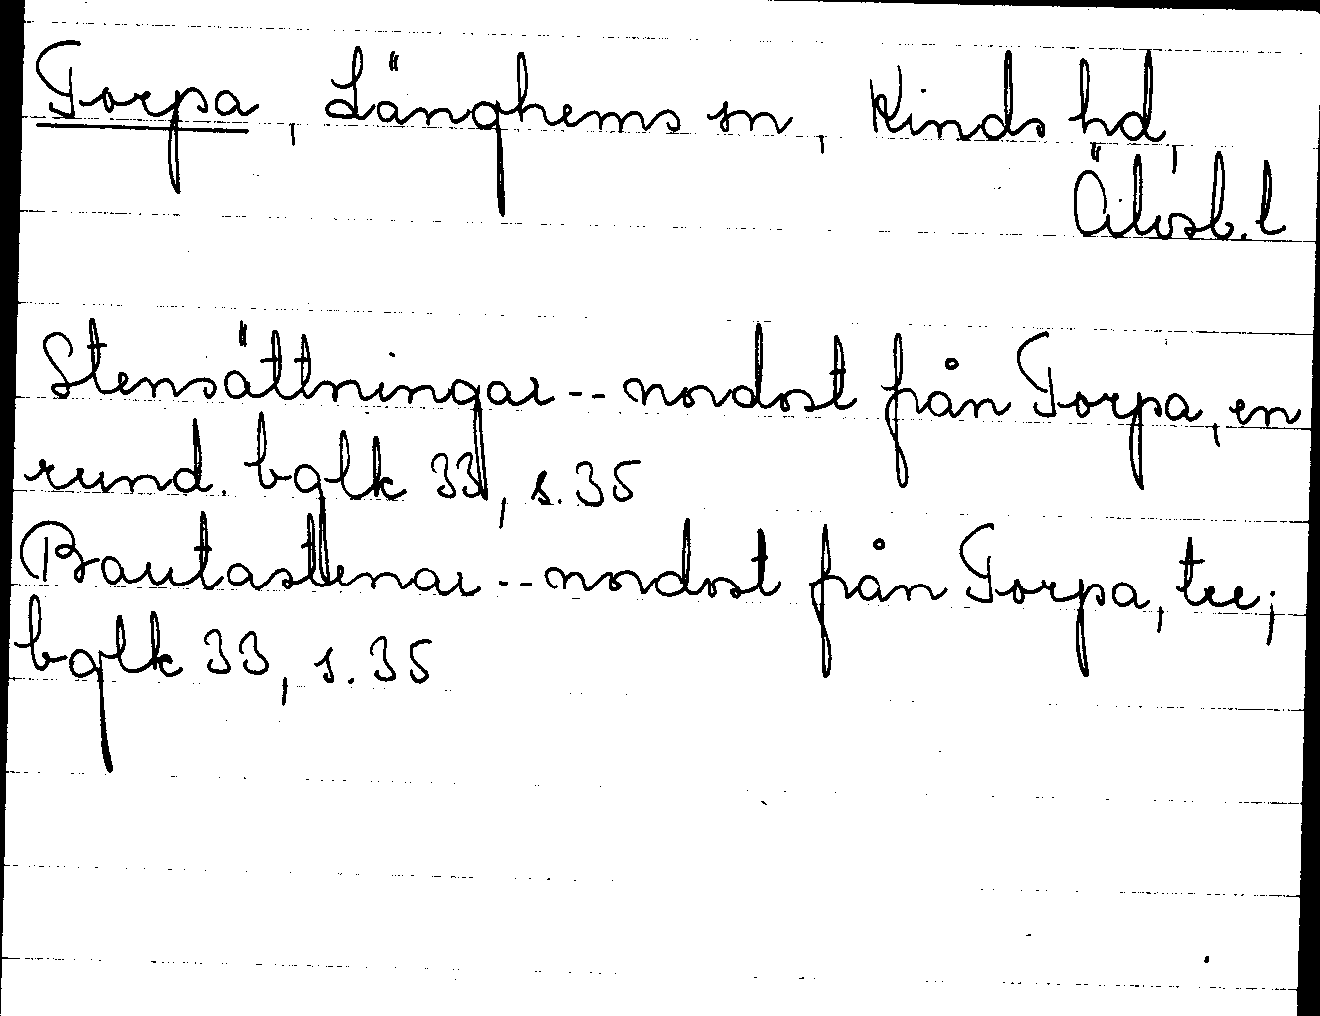 Torpa, Länghems sn, Kinds hd,
Älvsb. l
Stensättningar -- nordost från Torpa, en
rund. bglk 33, s. 35
Bautastenar -- nordost från Torpa, tre;
bglk 33, s. 35